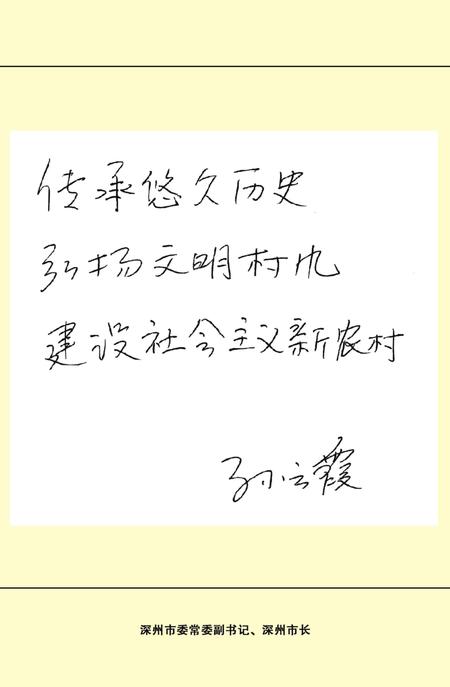 传承悠久历史
弘扬文明村风
建设社会主义新农村
孙云霞
深州市委常委副书记、深州市长